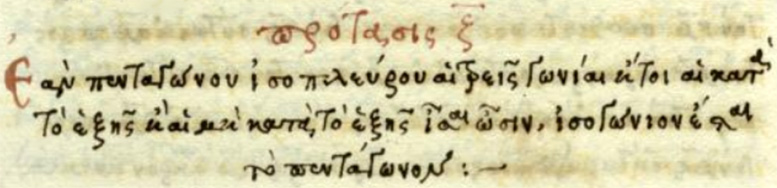 πρότασις ξ
Εὰν πενταγώνου ἰσοπλεύρου αἱ τρεῖς γωνίαι ἤτοι αἱ κατὰ
τὸ ἑξῆς ἢ αἱ μὴ κατὰ τὸ ἑξῆς ἴσαι ὦσιν, ἰσογώνιον ἔσται
τὸ πεντάγωνον :–